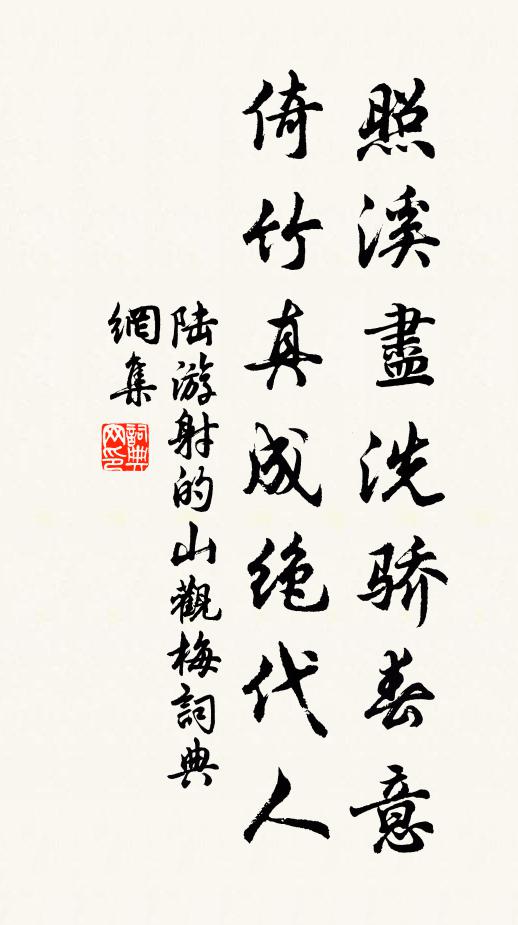 照溪盡洗骄春意
倚竹真成绝代人
陆游射的山觀梅詞典
網集
詞典
网印